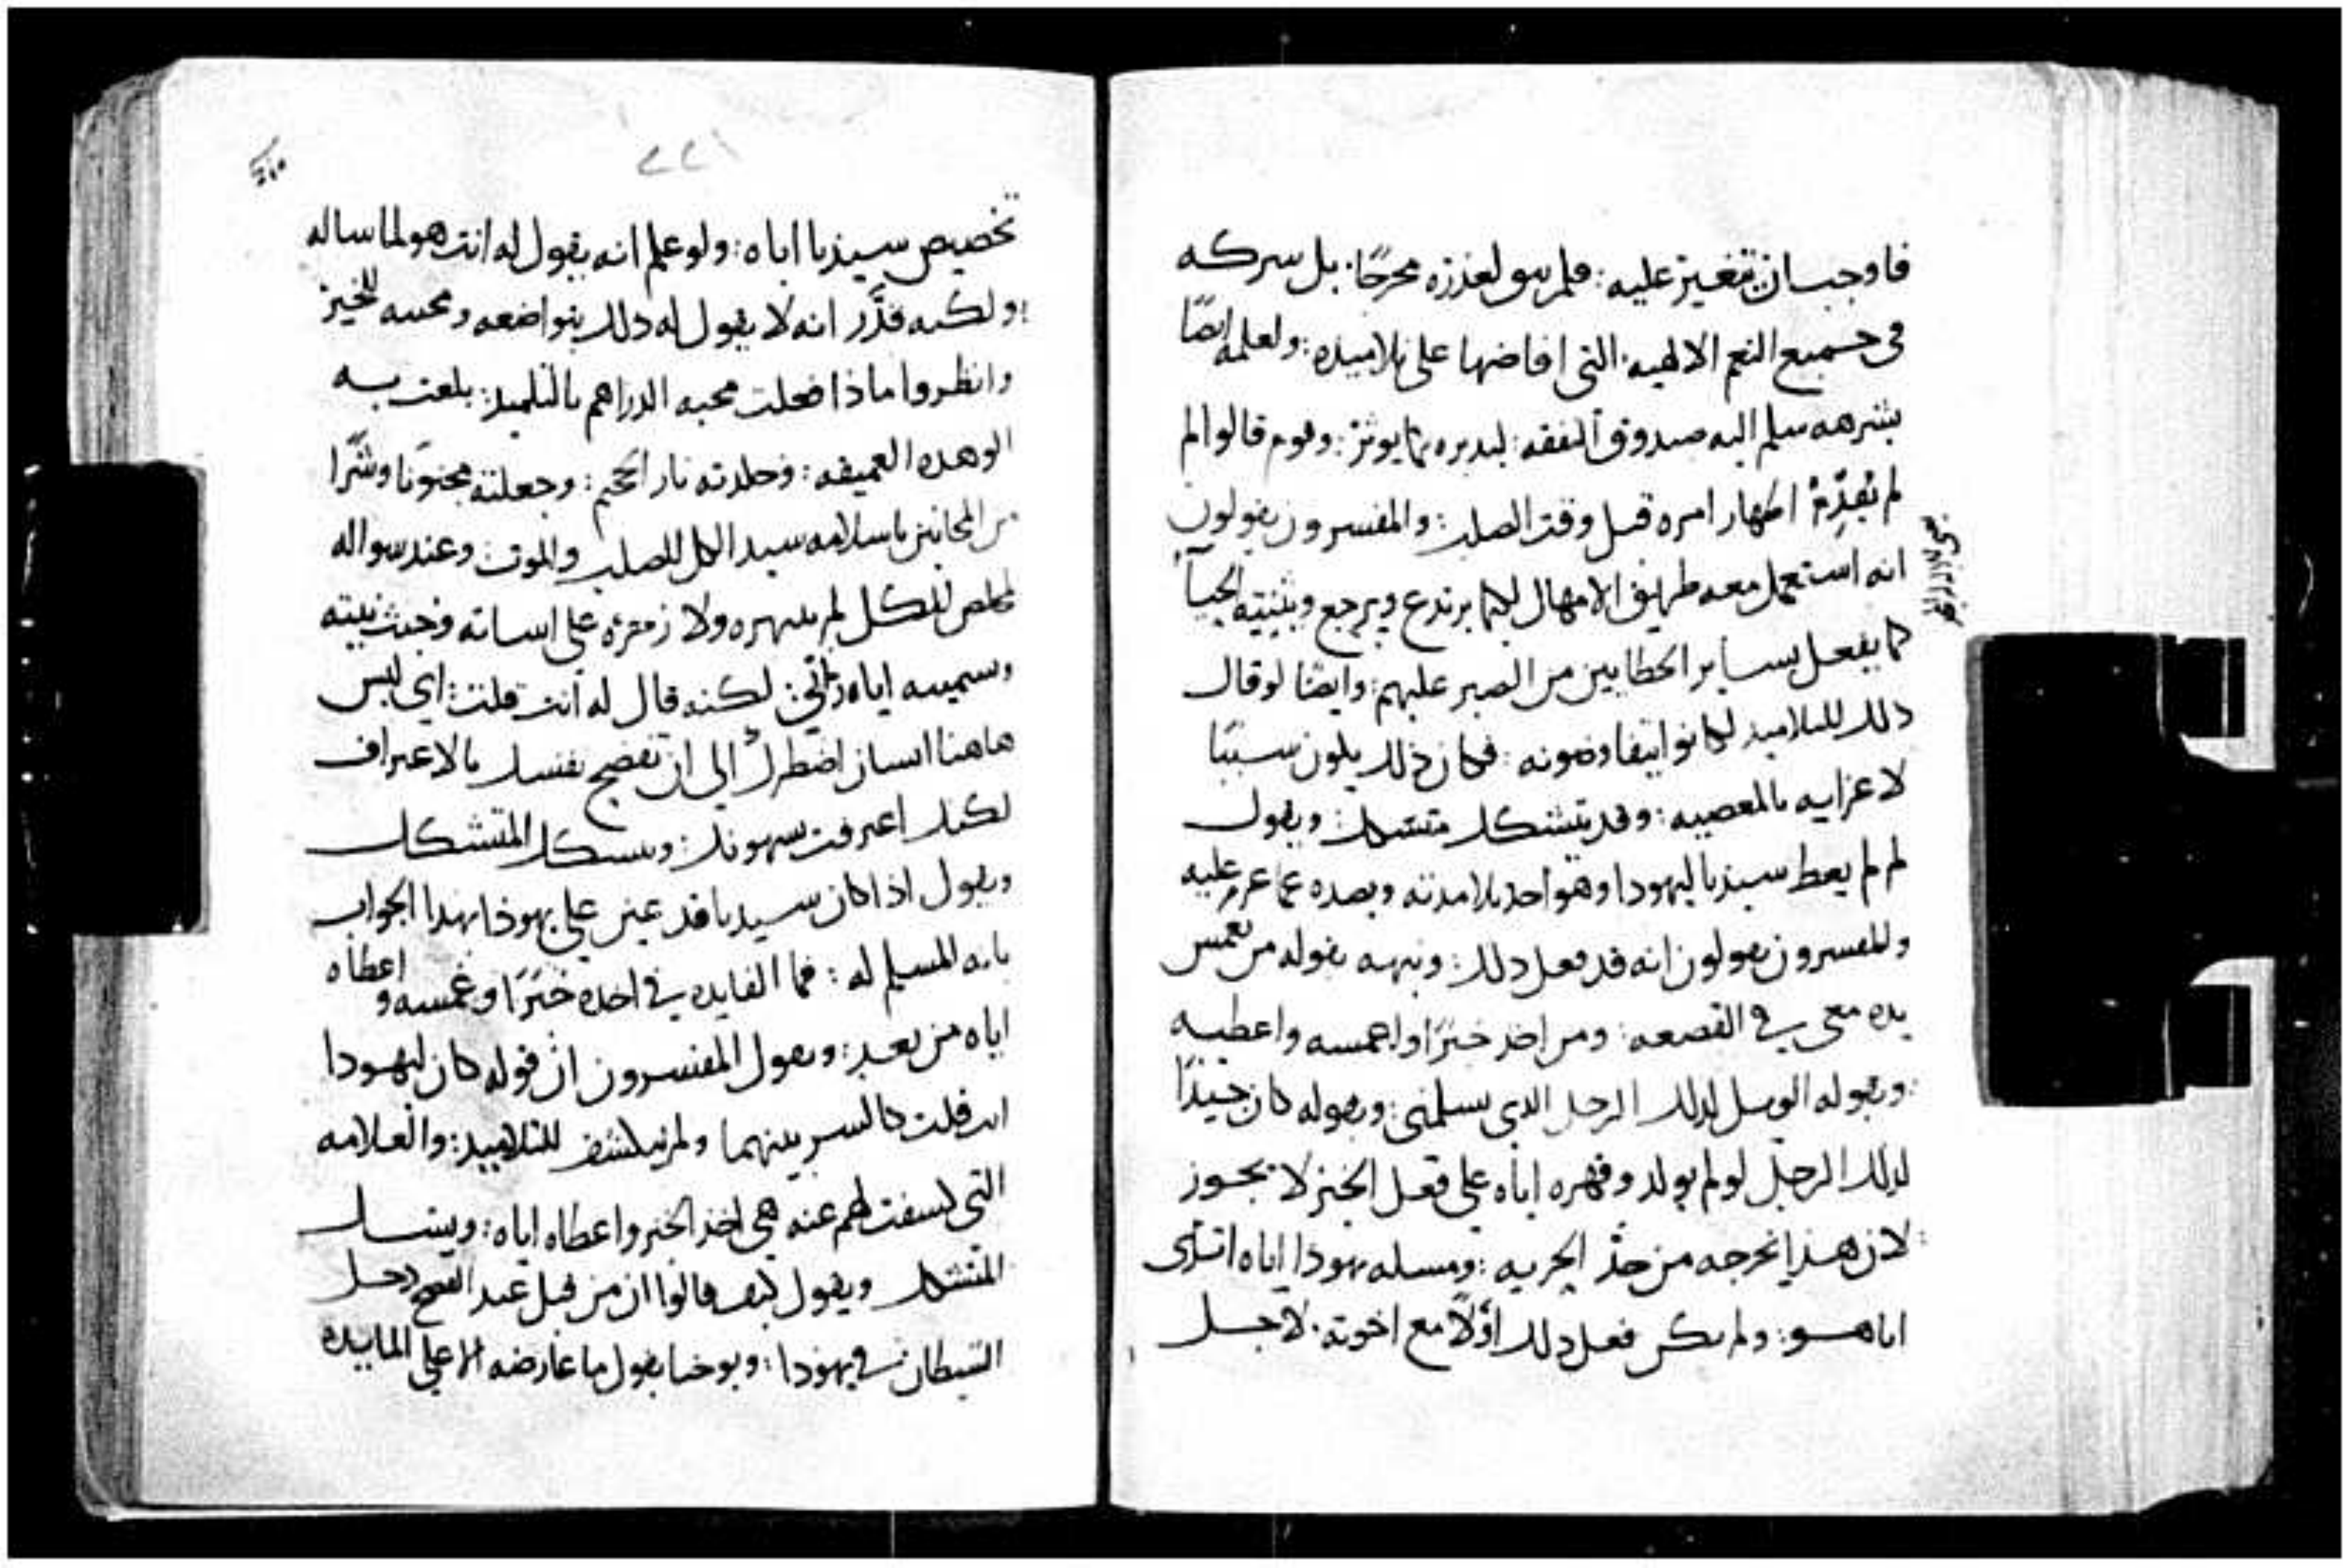 فاوجب ان تغير عليه: فلم يبق لعذره مخرجًا. بل سركه
في جميع النعم الالهيه. التي افاضها على تلاميده: ولعلمه ايضًا
بشرهه سلم اليه صندوق النفقه: ليدبره كما يوثر: وقوم قالوا لم
لم يُقدِّمْ اظهار امره قبل وقت الصلب: والمفسرون يقولون
انه استعمل معه طريق الامهال لكيما يرتدع ويرجع ويثنيه الحيآ
كما يفعل بساير الخطايين من الصبر عليهم: وايضًا لو قال
دلك للتلاميد لكانوا يتفاوضونه: فكان ذلك يكون سببًا
لاغرايه بالمعصيه: وقد يتشكك متشكك: ويقول
لم لم يعط سيدنا ليهودا وهو احد تلامدته ويصده عما عزم عليه
والمفسرون يقولون انه قد فعل دلك: ونبهه بقوله من يغمس
يده معي في القصعه: ومن اخد خبزًا واغمسه واعطيه
وبقوله الويل لدلك الرجل الدي يسلمني: وبقوله كان جيدًا
لدلك الرجل لو لم يولد وقهره اياه على فعل الخير لا يجوز
لان هذا يخرجه من حد الحريه: ومسله يهوذا اياه اترى
انا هو: ولم يكن فعل دلك اوّلًا مع اخوته. لاجل
٢٢١
تخصيص سيدنا اياه: ولو علم انه يقول له انت هو لما ساله
ولكنه قدَّر انه لا يقول له دلك بتواضعه ومحبته للخير
وانظروا ماذا فعلت محبه الدراهم بالتلميد: بلغت به
الوهده العميقه: وخلدته نار الجحيم: وجعلته مجنونًا وشرًّا
من المجانين باسلامه سيد الكل للصلب والموت وعند سواله
لمخلص الكل لم ينهره ولا زمزه على اساته وخبث نيته
وتسميته اياه ربّي: لكنه قال له انت قلت: اي ليس
هاهنا انسان اضطرك الى ان تفضح نفسك بالاعتراف
لكنك اعترفت بهوتك: ويتشكك المتشكك
ويقول اذا كان سيدنا قد عين على يهوذا بهدا الجواب
بانه المسلم له: فما الفايده في اخده خبزًا وغمسه واعطاه
اياه من بعد: ويقول المفسرون ان قوله كان ليهودا
انت قلت كالسر بينهما ولم ينكشف للتلاميد: والعلامه
التي كشفت لهم عنه هي اخذ الخبز واعطاه اياه: ويتشكك
المتشكك ويقول كيف قالوا ان من قبل عيد الفصح دخل
الشيطان في يهودا: ويوحنا يقول ما عارضه الا على المايده